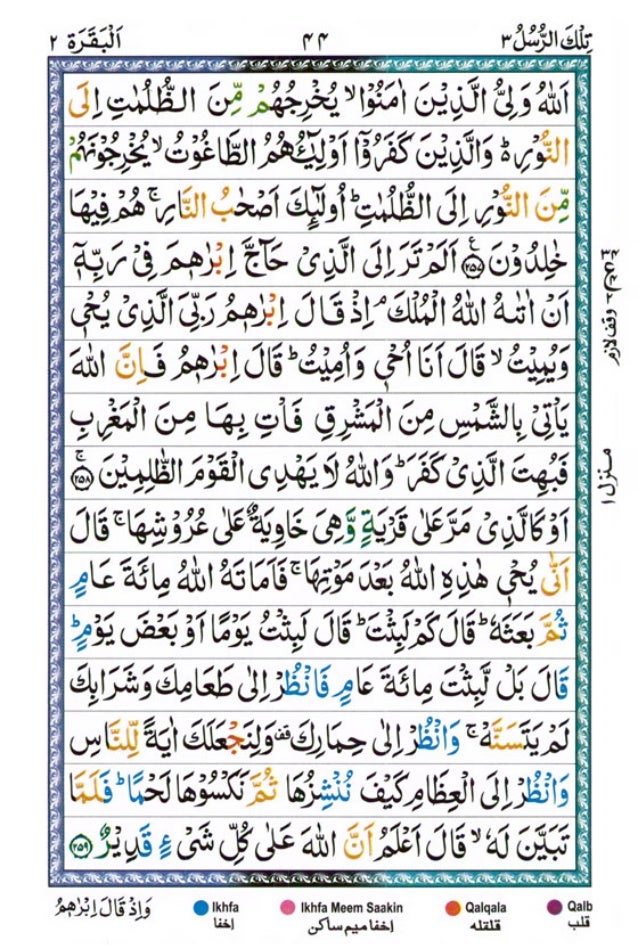 تِلْكَ الرُّسُلُ ٣
٤٤
اَلْبَقَرَة ٢
اَللّٰهُ وَلِيُّ الَّذِيْنَ اٰمَنُوْا ۙ يُخْرِجُهُمْ مِّنَ الظُّلُمٰتِ اِلَى
النُّوْرِ ؕ۬ وَالَّذِيْنَ كَفَرُوْۤا اَوْلِيٰٓـُٔهُمُ الطَّاغُوْتُ ۙ يُخْرِجُوْنَهُمْ
مِّنَ النُّوْرِ اِلَى الظُّلُمٰتِ ؕ اُولٰٓئِكَ اَصْحٰبُ النَّارِ ۚ هُمْ فِيْهَا
خٰلِدُوْنَ ﴿۲۵۷﴾ اَلَمْ تَرَ اِلَى الَّذِيْ حَآجَّ اِبْرٰهٖمَ فِيْ رَبِّهٖۤ
اَنْ اٰتٰىهُ اللّٰهُ الْمُلْكَ ۘ اِذْ قَالَ اِبْرٰهٖمُ رَبِّيَ الَّذِيْ يُحْيٖ
وَيُمِيْتُ ۙ قَالَ اَنَا اُحْيٖ وَاُمِيْتُ ؕ قَالَ اِبْرٰهٖمُ فَاِنَّ اللّٰهَ
يَاْتِيْ بِالشَّمْسِ مِنَ الْمَشْرِقِ فَاْتِ بِهَا مِنَ الْمَغْرِبِ
فَبُهِتَ الَّذِيْ كَفَرَ ؕ وَاللّٰهُ لَا يَهْدِي الْقَوْمَ الظّٰلِمِيْنَ ﴿۲۵۸﴾ ۚ
اَوْ كَالَّذِيْ مَرَّ عَلٰى قَرْيَةٍ وَّهِيَ خَاوِيَةٌ عَلٰى عُرُوْشِهَا ۚ قَالَ
اَنّٰى يُحْيٖ هٰذِهِ اللّٰهُ بَعْدَ مَوْتِهَا ۚ فَاَمَاتَهُ اللّٰهُ مِائَةَ عَامٍ
ثُمَّ بَعَثَهٗ ؕ قَالَ كَمْ لَبِثْتَ ؕ قَالَ لَبِثْتُ يَوْمًا اَوْ بَعْضَ يَوْمٍ ؕ
قَالَ بَلْ لَّبِثْتَ مِائَةَ عَامٍ فَانْظُرْ اِلٰى طَعَامِكَ وَشَرَابِكَ
لَمْ يَتَسَنَّهْ ۚ وَانْظُرْ اِلٰى حِمَارِكَ قف وَلِنَجْعَلَكَ اٰيَةً لِّلنَّاسِ
وَانْظُرْ اِلَى الْعِظَامِ كَيْفَ نُنْشِزُهَا ثُمَّ نَكْسُوْهَا لَحْمًا ؕ فَلَمَّا
تَبَيَّنَ لَهٗ ۙ قَالَ اَعْلَمُ اَنَّ اللّٰهَ عَلٰى كُلِّ شَيْءٍ قَدِيْرٌ ﴿۲۵۹﴾
وقف لازم
منزل ١
وَاِذْ قَالَ اِبْرٰهٖمُ
Ikhfa
اخفا
Ikhfa Meem Saakin
اخفا ميم ساكن
Qalqala
قلقله
Qalb
قلب